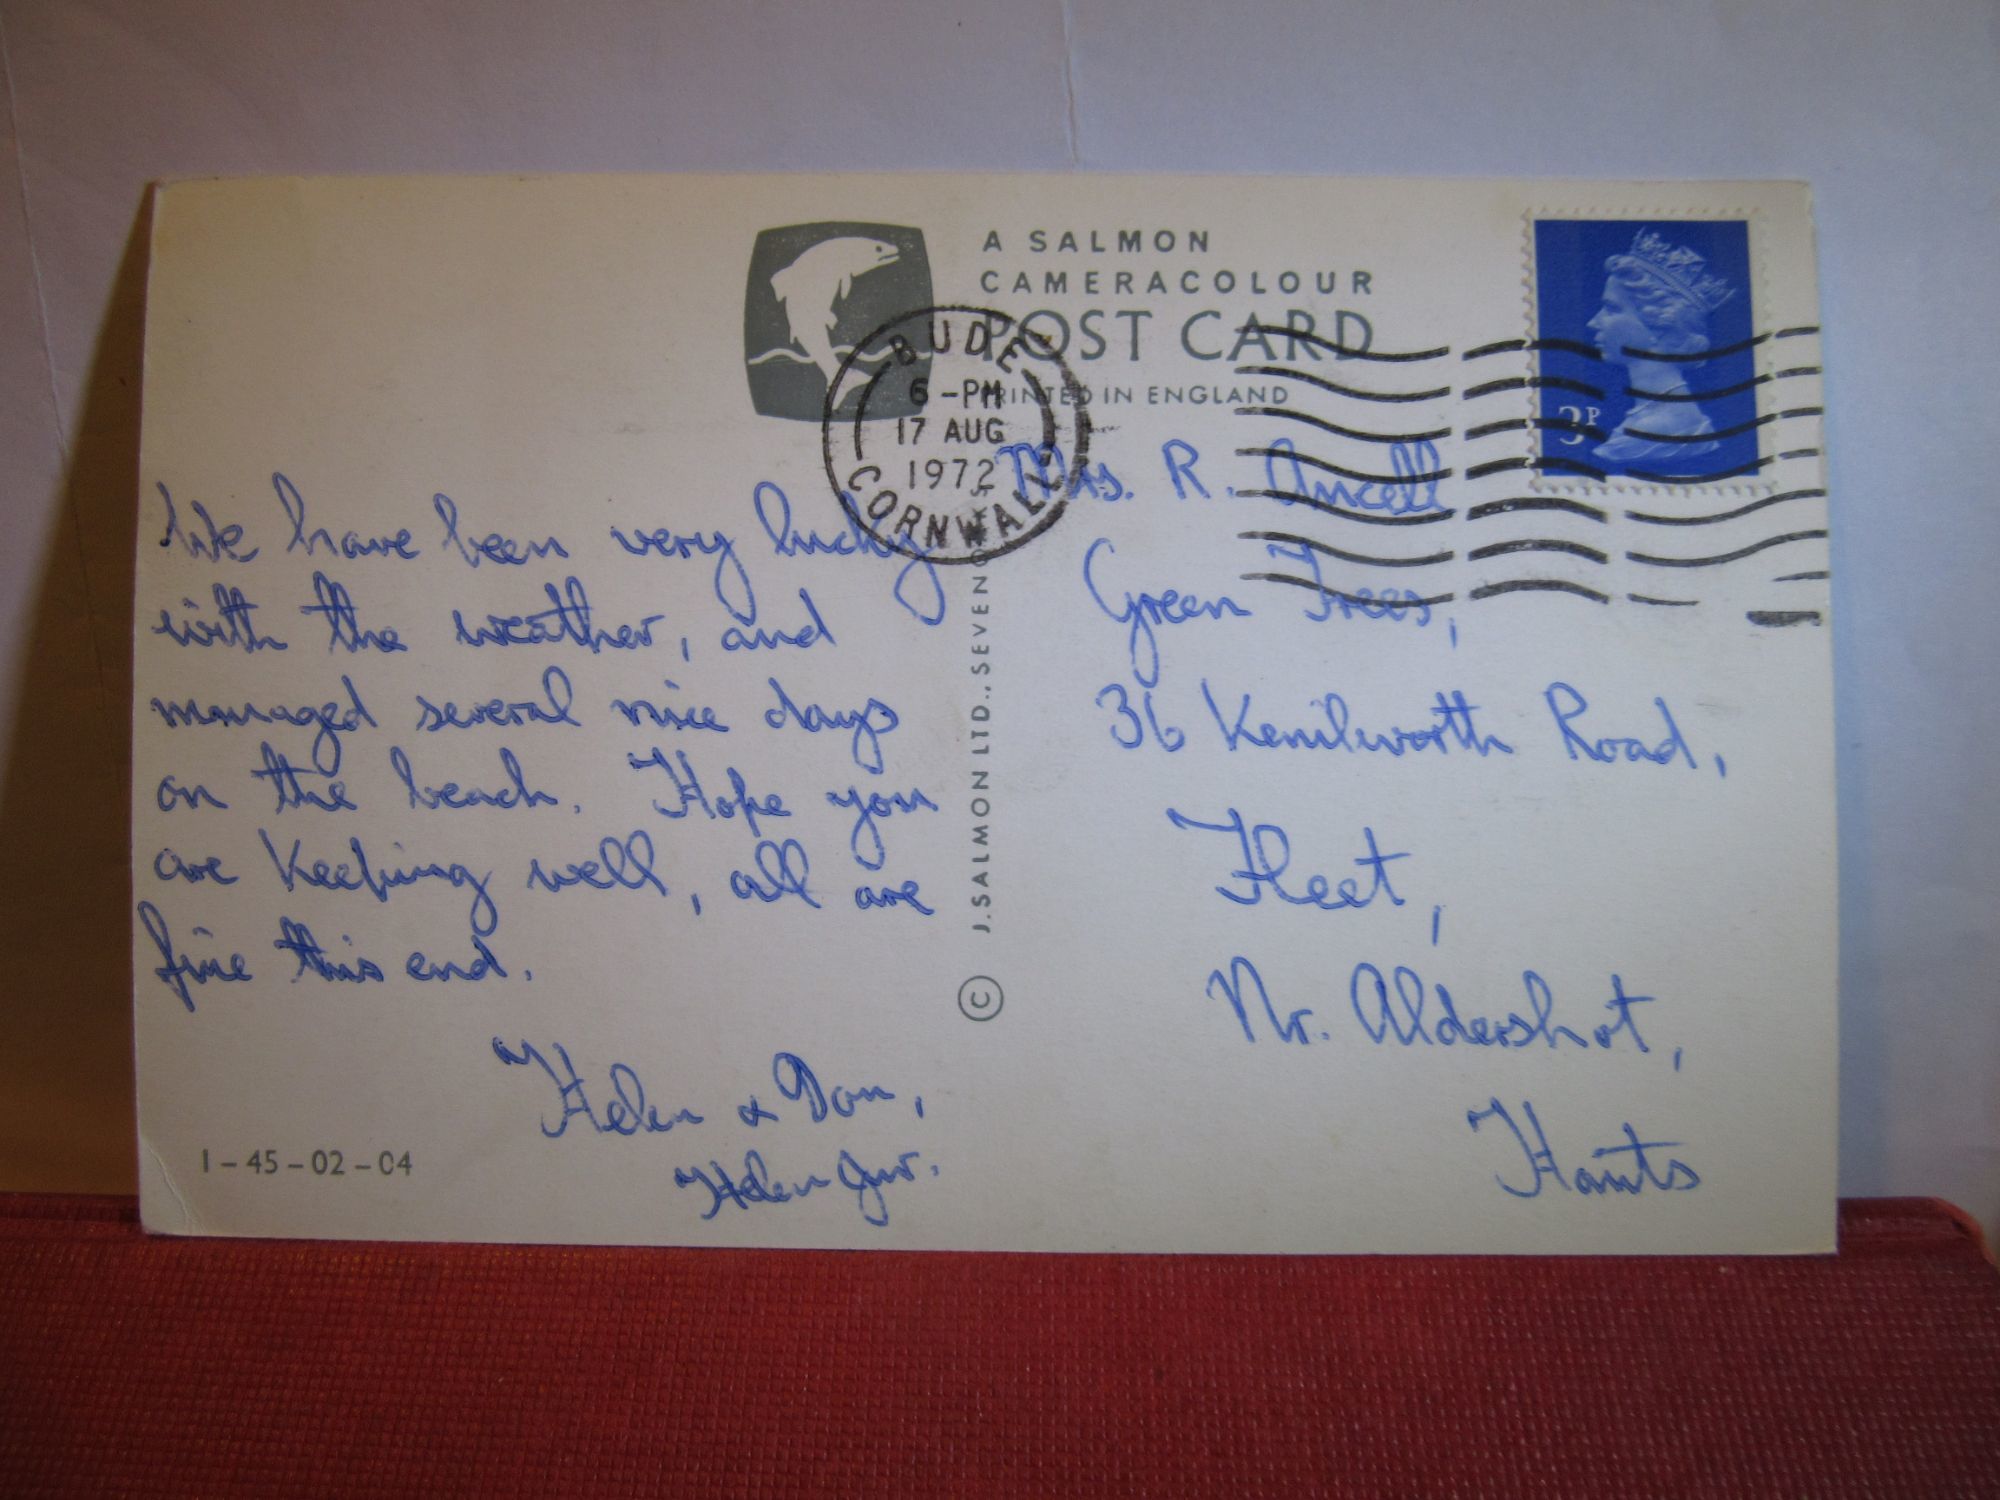 A SALMON
CAMERACOLOUR
POST CARD
PRINTED IN ENGLAND
BUDE
6-PM
17 AUG
1972
CORNWALL
3P
We have been very lucky
with the weather, and
managed several nice days
on the beach. Hope you
are keeping well, all are
fine this end.
Helen & Don,
Helen Jnr.
1-45-02-04
© J. SALMON LTD., SEVENOAKS
Mrs. R. Ancell
Green Trees,
36 Kenilworth Road,
Fleet,
Nr. Aldershot,
Hants